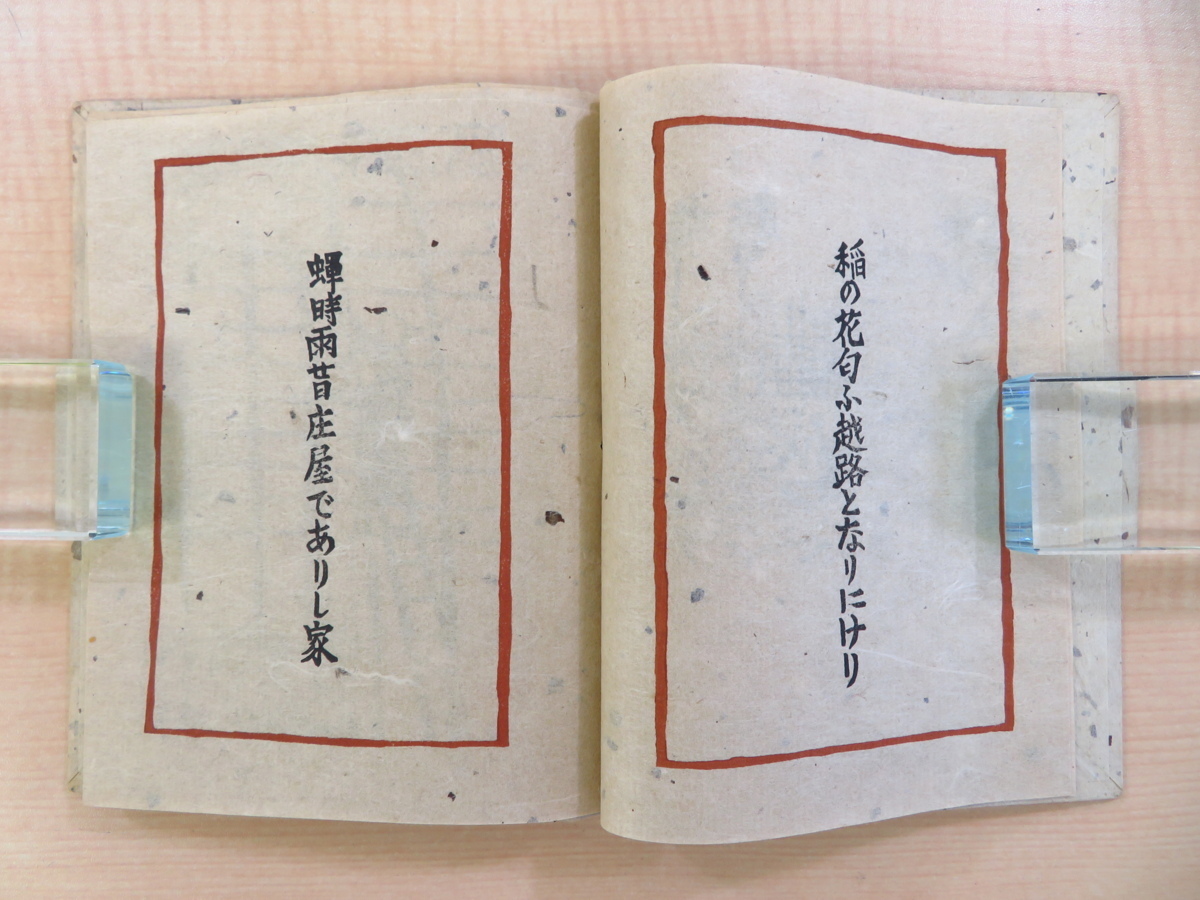 稲の花匂ふ越路となりにけり
蟬時雨昔庄屋でありし家